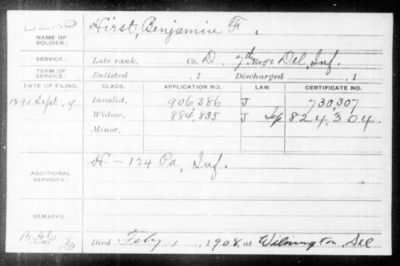 DEAD
NAME OF SOLDIER: Hirst, Benjamin F.
SERVICE: Late rank, Co. D, 7th Reg't Del, Inf.
TERM OF SERVICE: Enlisted , 1 Discharged , 1
DATE OF FILING. CLASS. APPLICATION NO. LAW. CERTIFICATE NO.
1890 Sept. 9 Invalid, 906,386 J 730,307
Widow, 884,835 J 824,304
Minor,
ADDITIONAL SERVICES: H - 124 Pa, Inf.
REMARKS:
Died Feby 1, 1908, at Wilmington, Del